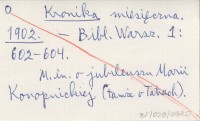 O
Kronika miesięczna.
1902. — Bibl. Warsz. 1:
602-604.
M. in. o jubileuszu Marii
Konopnickiej (tamże o Tatrach).